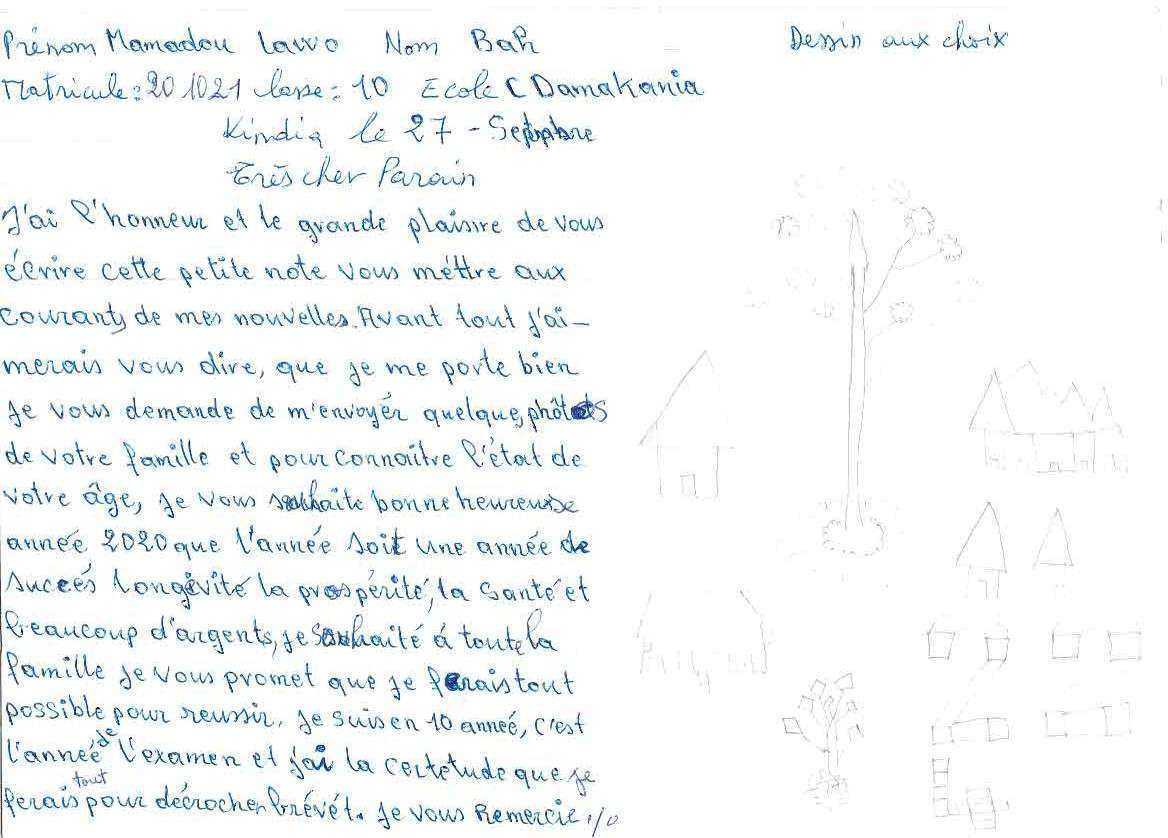 Prénom Mamadou Lawo Nom Bah
Matricule: 201021 Classe: 10 Ecole C Damakania
Kindia le 27 - Septembre
Très cher Parain
J'ai l'honneur et le grande plaisire de vous
écrire cette petite note vous méttre aux
courants de mes nouvelles. Avant tout j'ai-
merais vous dire, que je me porte bien
je vous demande de m'envoyér quelques phôtos
de votre famille et pour connaître l'état de
votre âge, je vous souhaite bonne heureuse
année 2020 que l'année soit une année de
succés longévité la prospérité, la santé et
beaucoup d'argents, je souhaité á toute la
famille je vous promet que je ferais tout
possible pour reussir. je suis en 10 année, c'est
l'année de l'examen et j'ai la certetude que je
ferais tout pour décrocher brévét. je vous Remercie
Dessin aux choix